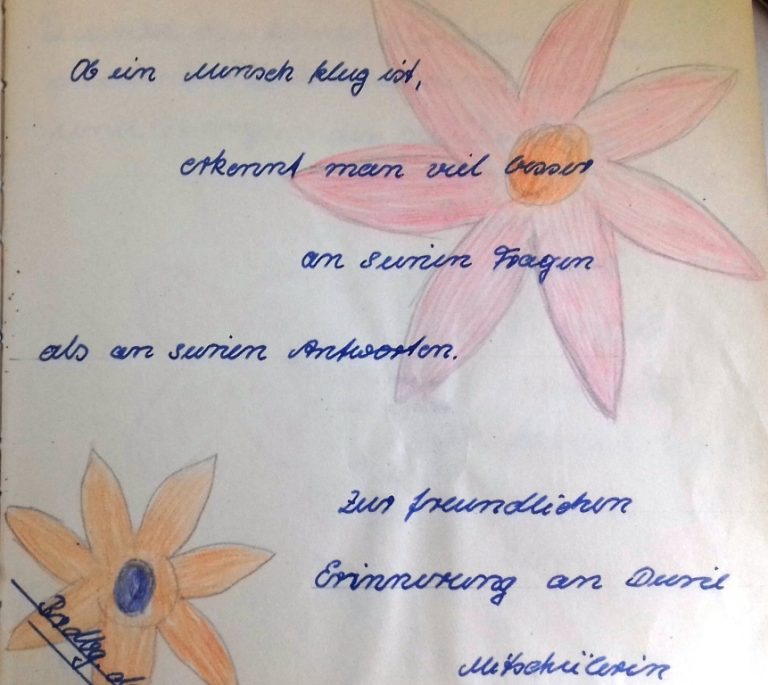 Ob ein Mensch klug ist,
erkennt man viel besser
an seinen Fragen
als an seinen Antworten.
Zur freundlichen
Erinnerung an Deine
Mitschülerin